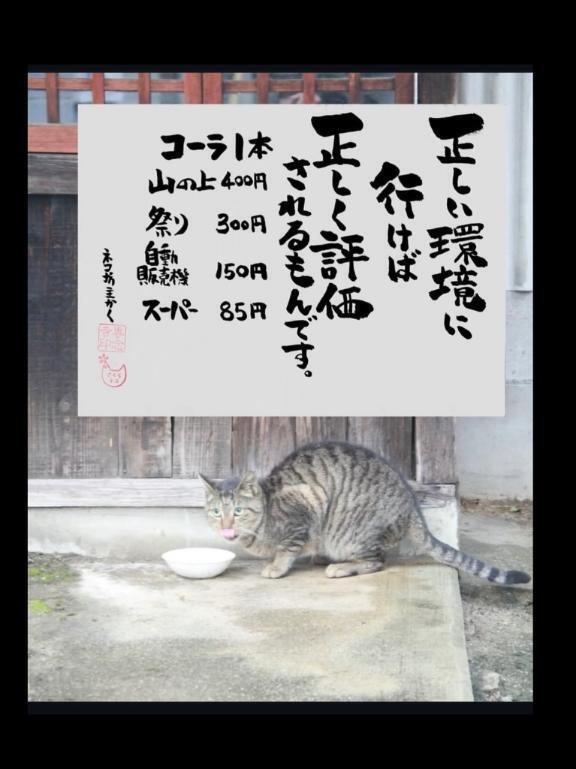 正しい環境に
行けば
正しく評価
されるもんです。
コーラ1本
山の上 400円
祭り 300円
自動販売機 150円
スーパー 85円